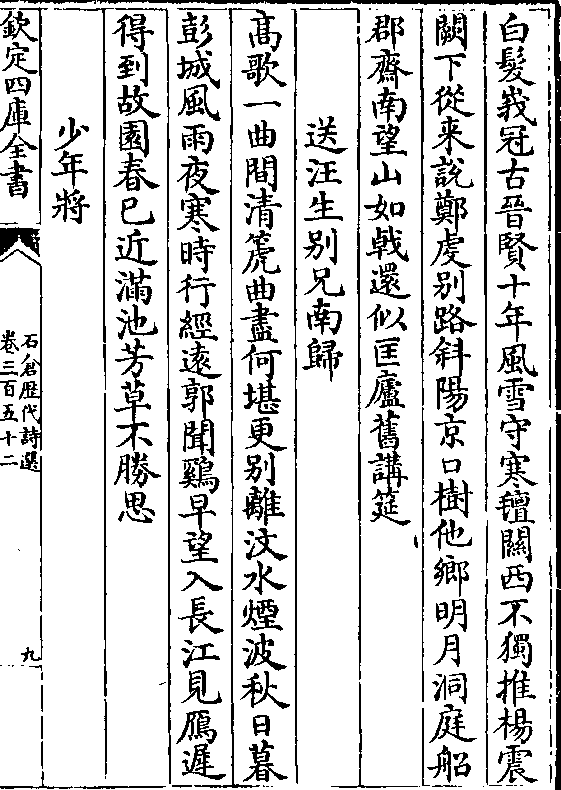 白髮峩冠古晉賢十年風雪守寒氊關西不獨推楊震
闕下從来說鄭䖍别路斜陽京口樹他鄉明月洞庭船
郡齋南望山如㦸還似匡廬舊講筵
送汪生别兄南歸
髙歌一曲間清篪曲盡何堪更别離汶水煙波秋日暮
彭城風雨夜寒時行經逺郭聞鷄早望入長江見鴈遲
得到故園春已近滿池芳草不勝思
少年將
欽定四庫全書
石倉歴代詩選
卷三百五十二
九